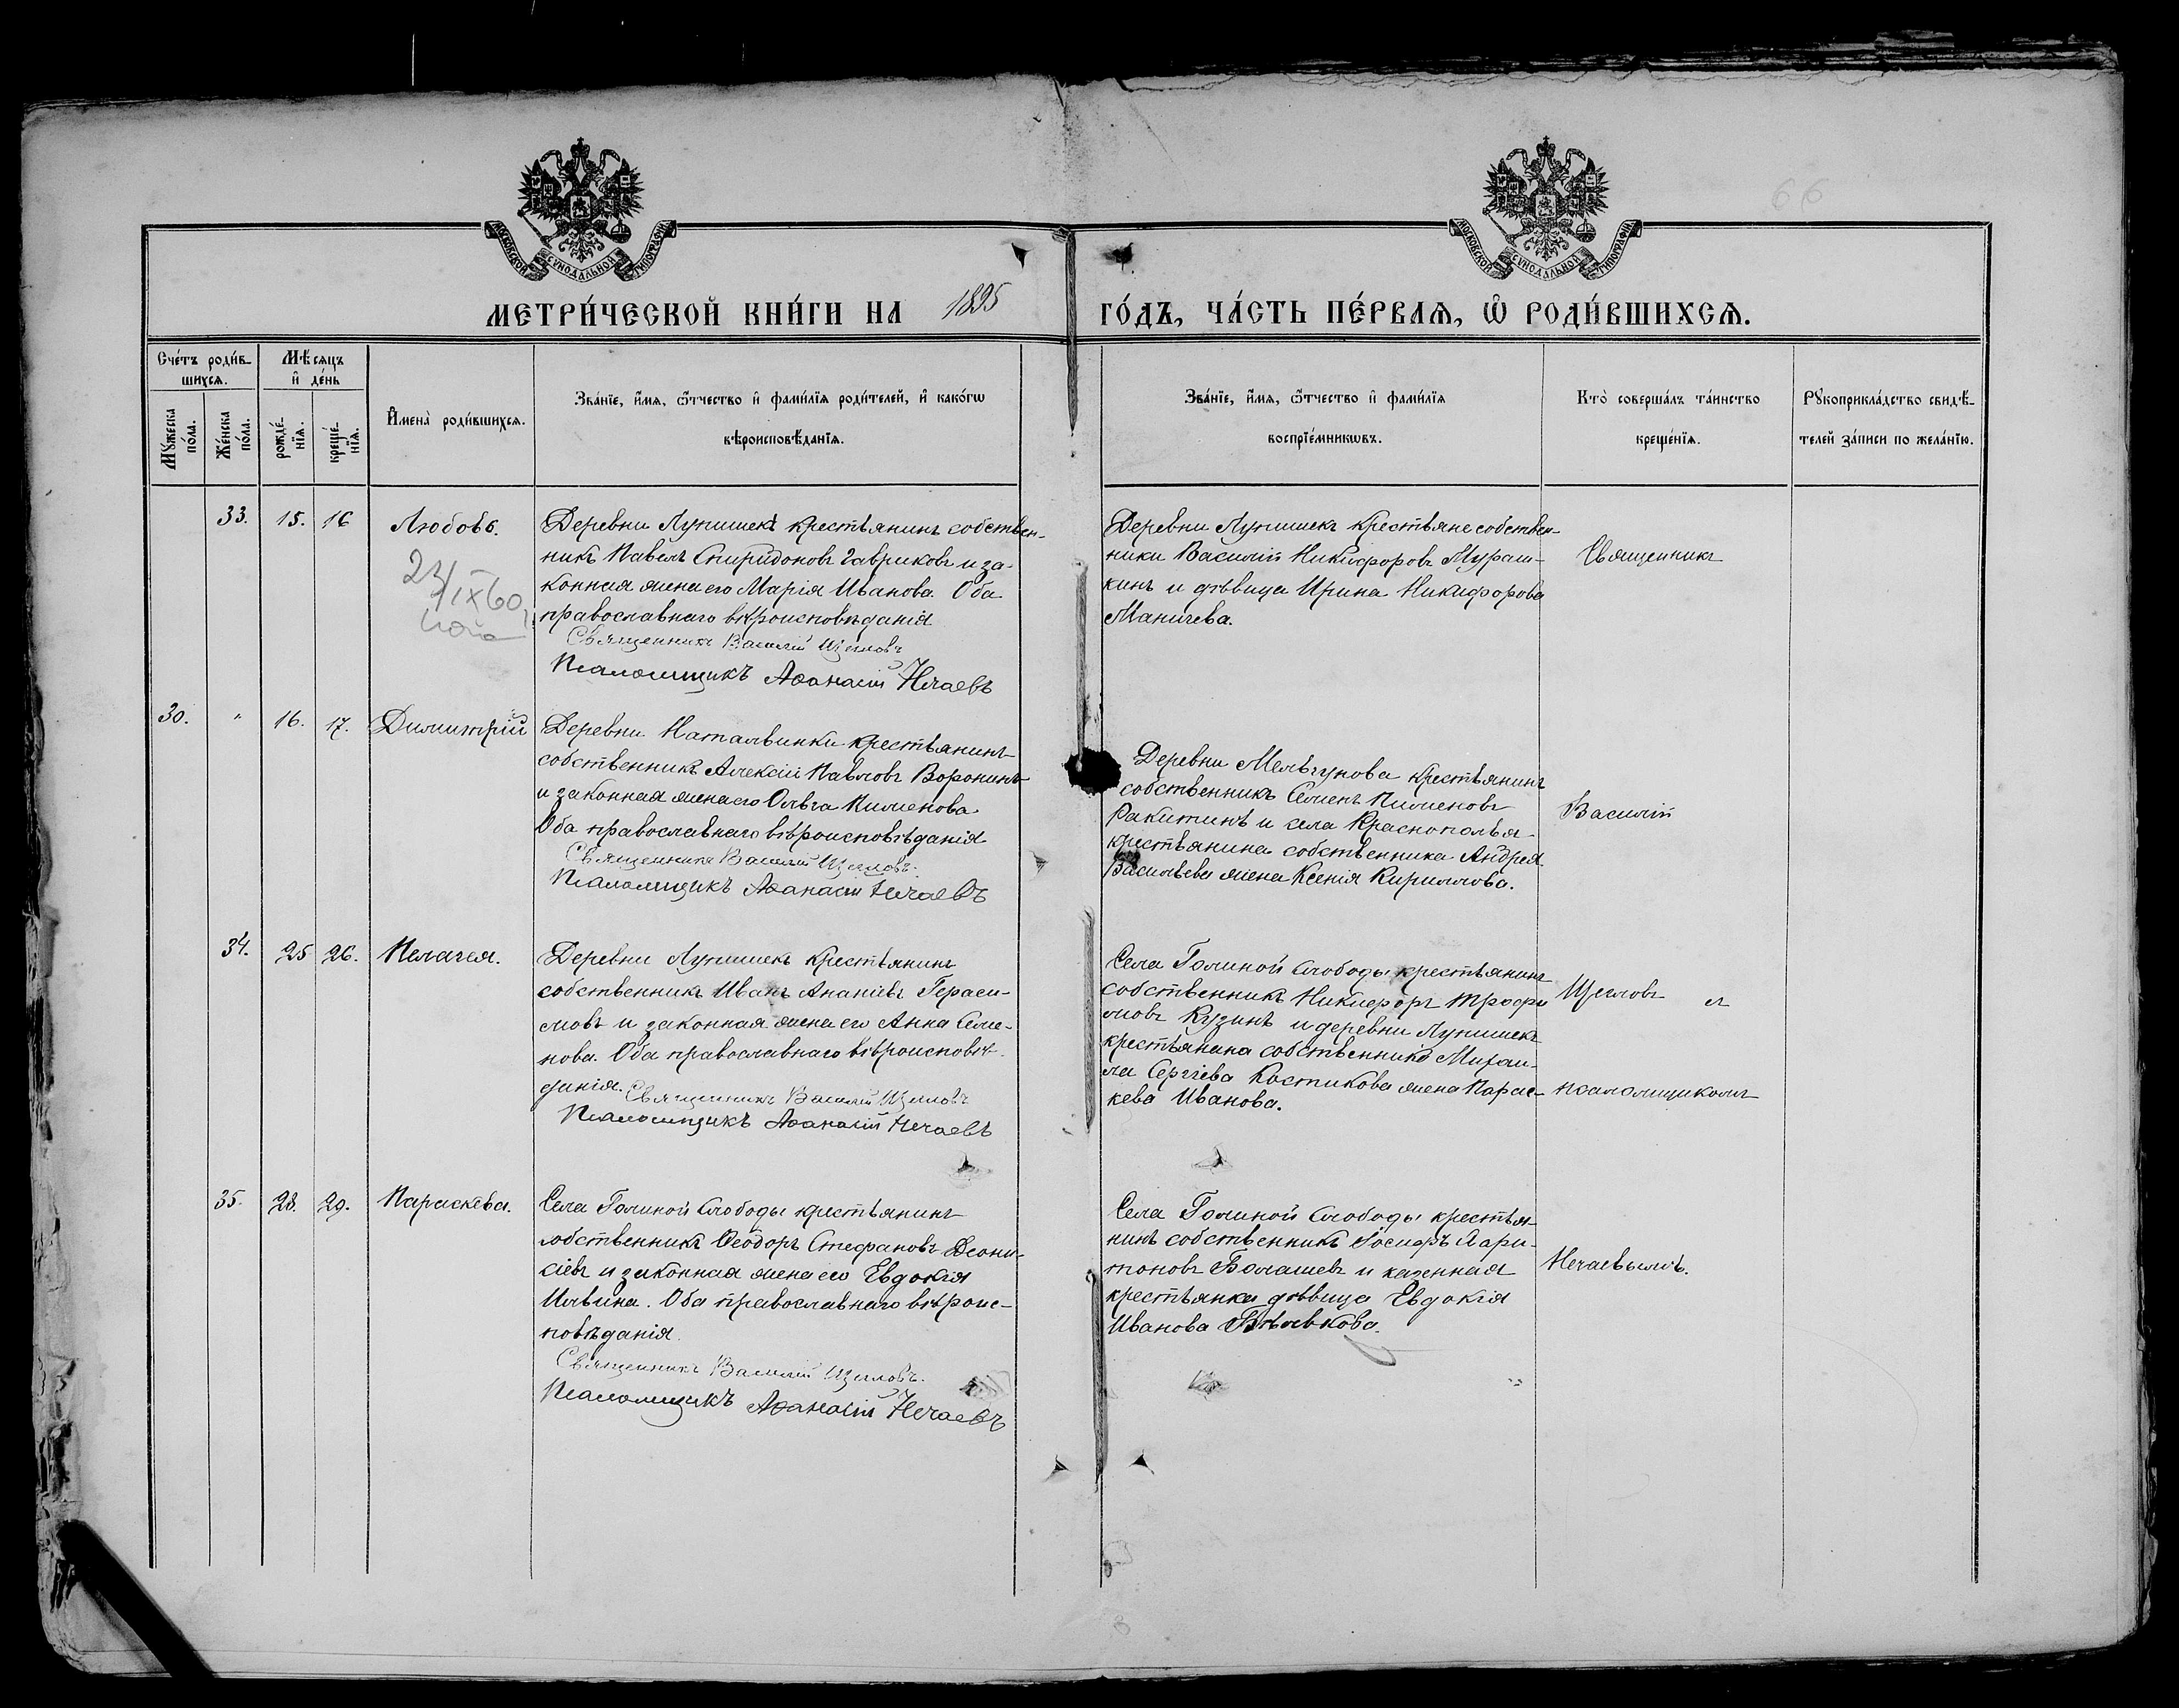 66
МОСКОВСКОЙ СУНОДАЛЬНОЙ ТИПОГРАФІИ
МОСКОВСКОЙ СУНОДАЛЬНОЙ ТИПОГРАФІИ
МЕТРИ́ЧЕСКОЙ КНИ́ГИ НА 1895 ГО́ДЪ, ЧА́СТЬ ПЕ́РВАѦ, Ѡ РОДИ́ВШИХСѦ.
Сче́тъ роди́в-
шихсѧ.
Мꙋжеска по́ла.
Же́нска по́ла.
Мѣ́сѧцъ
и҆ де́нь
рожде́-
нїѧ.
креще́-
нїѧ.
И҆мена̀ роди́вшихсѧ.
Зва́нїе, и҆́мѧ, ѻ҆́тчество и҆ фами́лїѧ роди́телей, и҆ како́гѡ
вѣроисповѣ́данїѧ.
Зва́нїе, и҆́мѧ, ѻ҆́тчество и҆ фами́лїѧ
воспрїе́мникѡвъ.
Кто̀ соверша́лъ та́инство
креще́нїѧ.
Рꙋкоприкла́дство свидѣ́-
телей за́писи по жела́нїю.
33. 15. 16 Любовь.
23/IX 60
Деревни Лупишекъ крестьянинъ собствен-
никъ Павелъ Спиридоновъ Гавриковъ и за-
конная жена его Марія Иванова. Оба
православнаго вѣроисповѣданія
Священникъ Василій Щегловъ
Псаломщикъ Аѳанасій Нечаевъ
Деревни Лупишекъ крестьяне собствен-
ники Василій Никифоровъ Мураш-
кинъ и дѣвица Ирина Никифорова
Маничева.
Священникъ
30. " 16. 17. Димитрій
Деревни Натальинки крестьянинъ
собственникъ Алексій Павловъ Воронинъ
и законная жена его Ольга Пименова.
Оба православнаго вѣроисповѣданія
Священникъ Василій Щегловъ.
Псаломщикъ Аѳанасій Нечаевъ
Деревни Мельгунова крестьянинъ
собственникъ Семенъ Пименовъ
Ракитинъ и села Краснополья
крестьянина собственника Андрея
Васильева жена Ксенія Кириллова.
Василій
34. 25 26. Пелагея.
Деревни Лупишекъ крестьянинъ
собственникъ Иванъ Ананіевъ Гераси-
мовъ и законная жена его Анна Семе-
нова. Оба православнаго вѣроисповѣ-
данія. Священникъ Василій Щегловъ
Псаломщикъ Аѳанасій Нечаевъ
Села Голиной Слободы крестьянинъ
собственникъ Никифоръ Трофи
мовъ Кузинъ и деревни Лупишекъ
крестьянина собственника Михаи-
ла Сергіева Костикова жена Парас-
кева Иванова.
Щегловъ съ
псаломщикомъ
35. 28. 29. Параскева.
Села Голиной Слободы крестьянинъ
собственникъ Ѳеодоръ Стефановъ Деони-
сіевъ и законная жена его Евдокія
Ильина. Оба православнаго вѣроис-
повѣданія.
Священникъ Василій Щегловъ.
Псаломщикъ Аѳанасій Нечаевъ
Села Голиной Слободы крестья-
нинъ собственникъ Іосифъ Хари-
тоновъ Балашевъ и казенная
крестьянка дѣвица Евдокія
Иванова
Нечаевымъ.